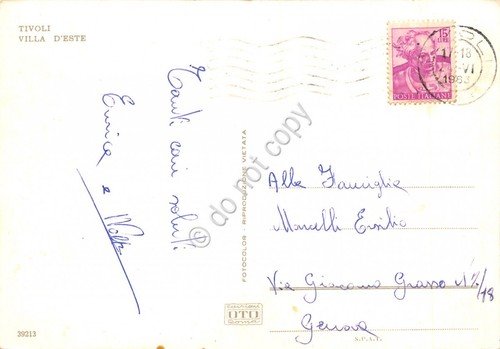 TIVOLI
VILLA D'ESTE
15
POSTE ITALIANE
17-18
VI
Tanti cari saluti
Enrica e
FOTOCOLOR - RIPRODUZIONE VIETATA
do not copy
Alla Famiglia
Marcelli Emilio
Via Giacomo Grasso
Genova
39213
OTO
ROMA
S.P.A.T.